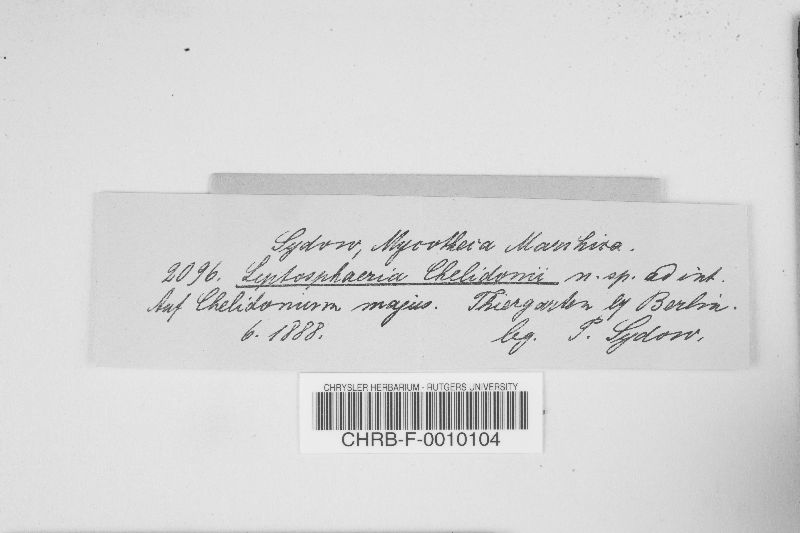 Sydow, Mycotheca Marchica.
2096. Leptosphaeria Chelidonii n. sp. ad int.
Auf Chelidonium majus. Thiergarten by Berlin.
6. 1888. leg. P. Sydow.
CHRYSLER HERBARIUM - RUTGERS UNIVERSITY
CHRB-F-0010104